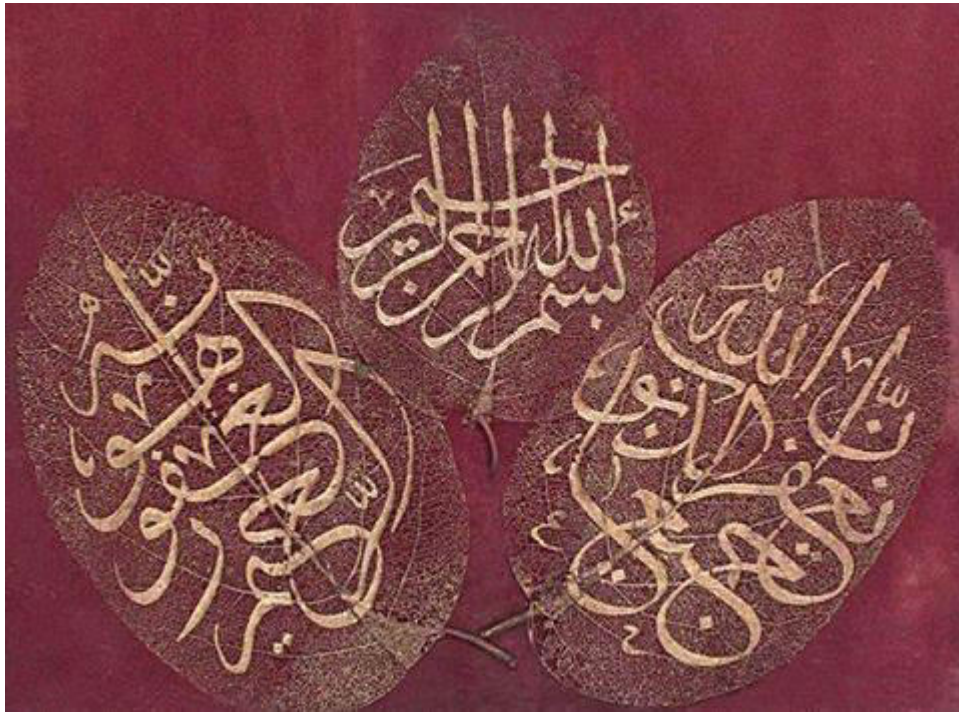 بسم الله الرحمن الرحيم
إنّ الله يغفر الذنوب جميعا
إنّه هو الغفور الرّحيم